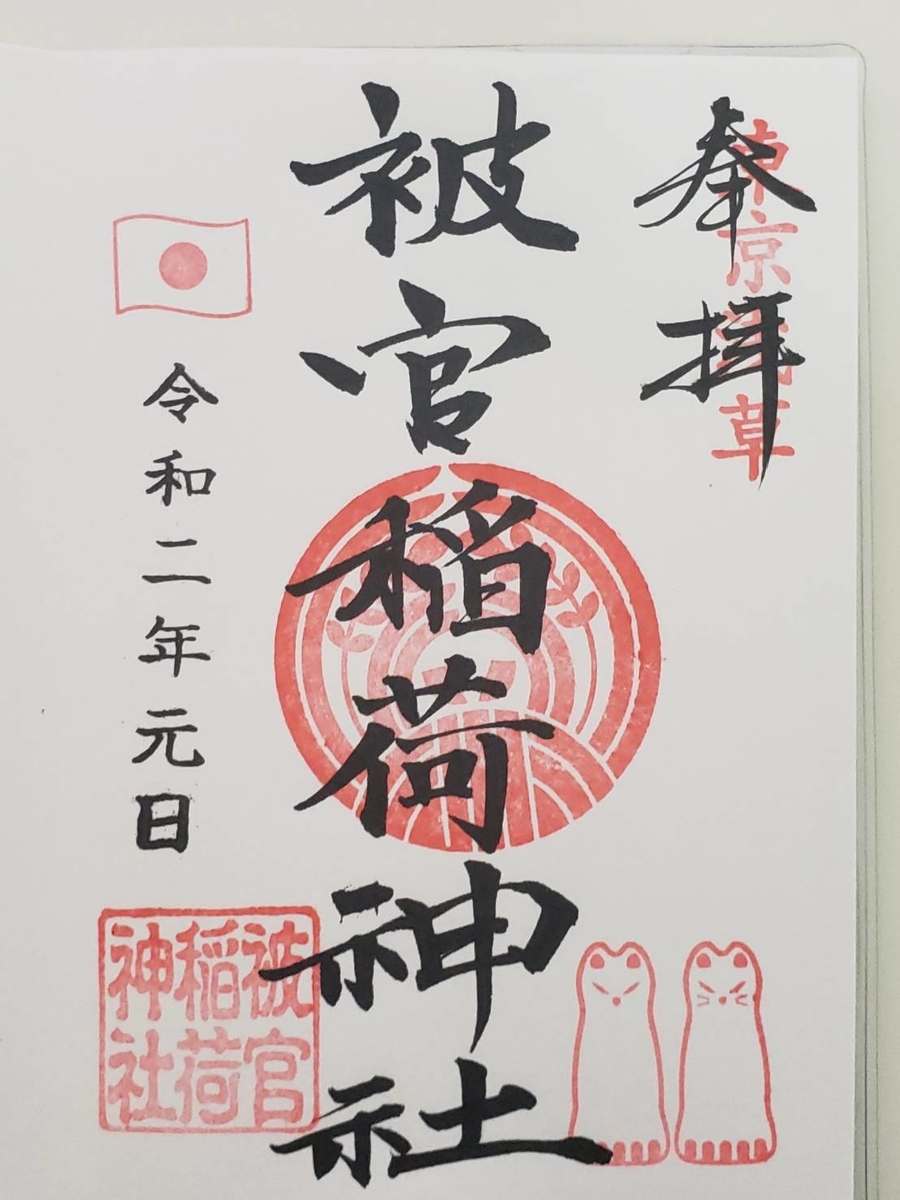 奉拝
東京浅草
被官稲荷神社
令和二年元日
被官
稲荷
神社